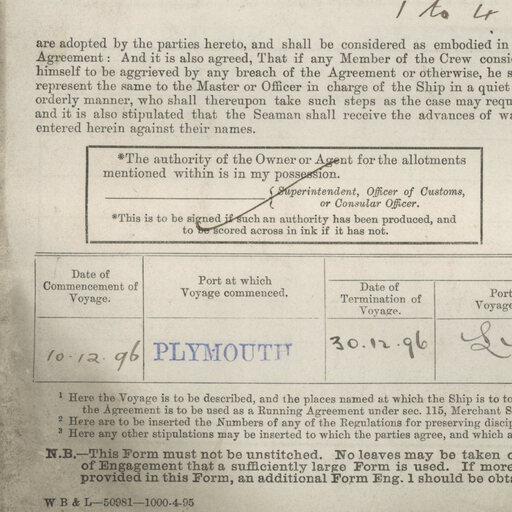 1 to 4
are adopted by the parties hereto, and shall be considered as embodied in
Agreement: And it is also agreed, That if any Member of the Crew consi
himself to be aggrieved by any breach of the Agreement or otherwise, he s
represent the same to the Master or Officer in charge of the Ship in a quiet
orderly manner, who shall thereupon take such steps as the case may requ
and it is also stipulated that the Seaman shall receive the advances of wa
entered herein against their names.
*The authority of the Owner or Agent for the allotments
mentioned within is in my possession.
Superintendent, Officer of Customs,
or Consular Officer.
*This is to be signed if such an authority has been produced, and
to be scored across in ink if it has not.
Date of
Commencement of
Voyage.
Port at which
Voyage commenced.
Date of
Termination of
Voyage.
Port
Voyage
10.12.96
PLYMOUTH
30.12.96
1 Here the Voyage is to be described, and the places named at which the Ship is to to
the Agreement is to be used as a Running Agreement under sec. 115, Merchant S
2 Here are to be inserted the Numbers of any of the Regulations for preserving discip
3 Here any other stipulations may be inserted to which the parties agree, and which a
N.B.—This Form must not be unstitched. No leaves may be taken o
of Engagement that a sufficiently large Form is used. If more
provided in this Form, an additional Form Eng. 1 should be obta
W B & L—50981—1000-4-95